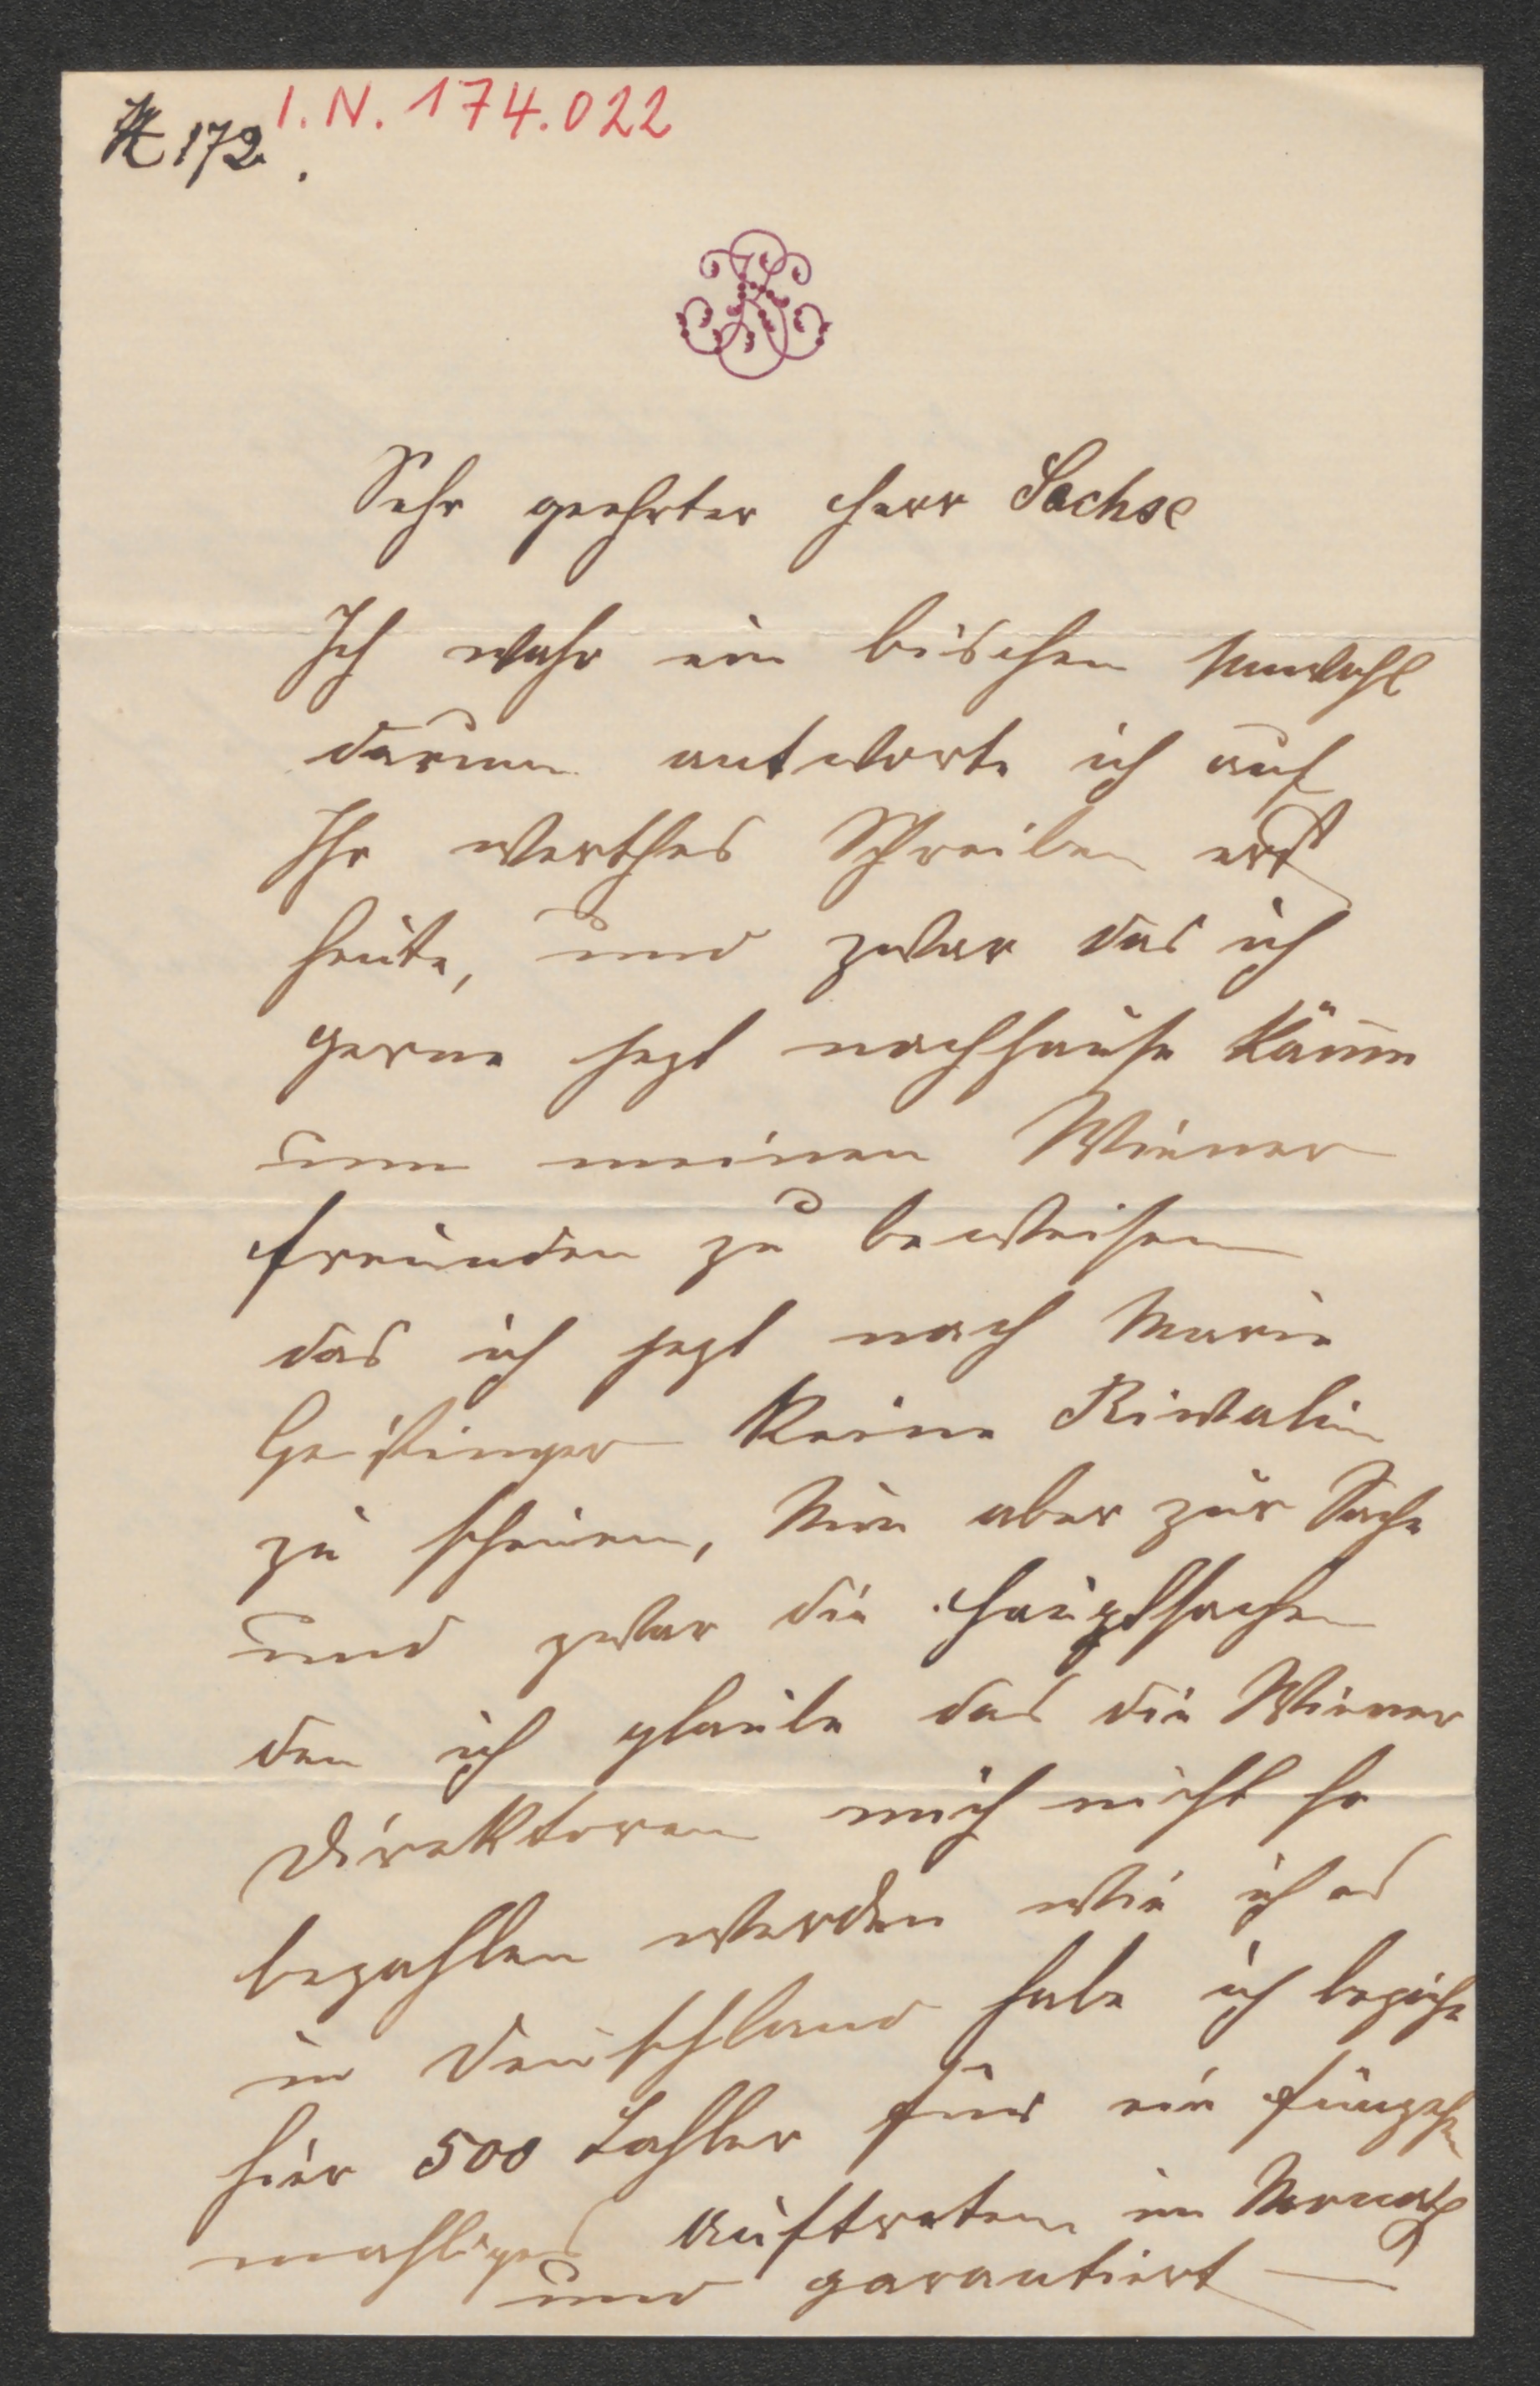 I.N. 174.022
172.
Sehr geehrter Herr Sachse
Ich wahr ein bischen unwohl
darum antworte ich auf
Ihr werthes Schreiben erst
heute, und zwar das ich
gerne jezt nachhause käme
um meinen Wiener
Freunden zu beweisen
das ich jezt nach Marie
Geistinger keine Riwalin
zu scheuen, Nun aber zur Sache
und zwar die Hauptsache
den ich glaube das die Wiener
Direktoren mich nicht so
bezahlen werden wie ich es
in Deuschland habe ich beziehe
hier 500 Tahler für ein fünfzehn
mahliges Auftreten im Monath
und garantiert —